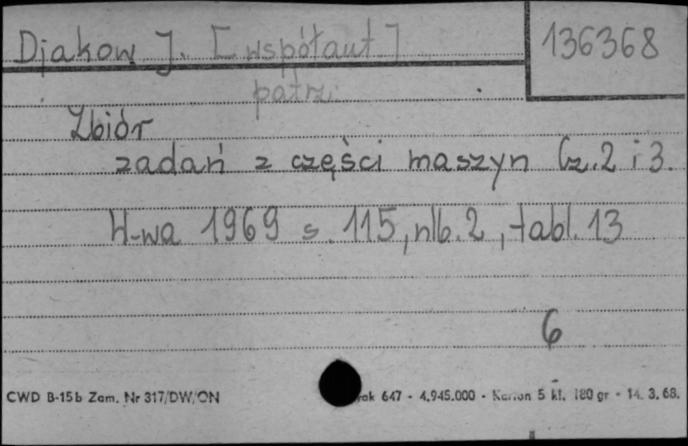 Djakow J. [współaut.]
136368
patrz:
Zbiór
zadań z części maszyn Cz. 2 i 3.
W-wa 1969 s. 115, nlb. 2, tabl. 13
6
CWD B-15b Zam. Nr 317/DW/ON
647 - 4.945.000 - Karton 5 kl. 180 gr - 14. 3. 68.